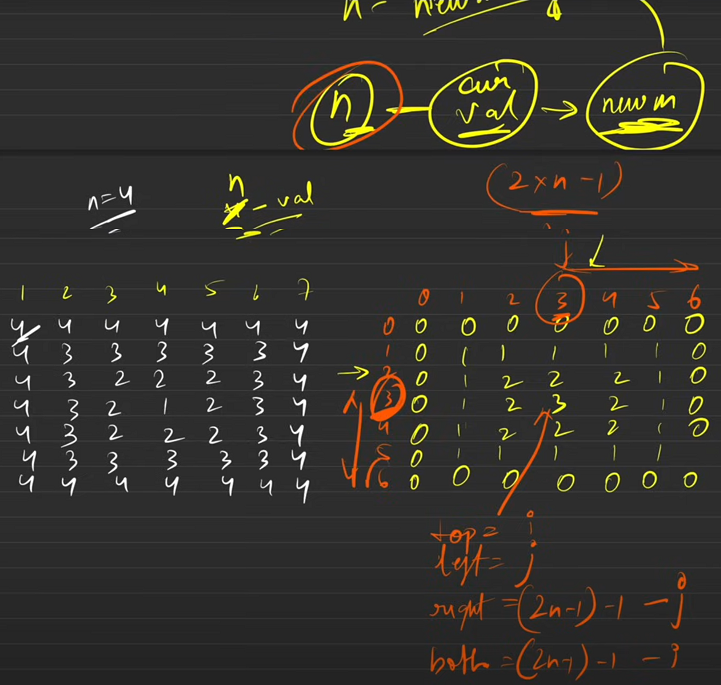 n = new
n — curr val → new m
n=4
n
- val
(2×n-1)
1 2 3 4 5 6 7
4 4 4 4 4 4 4
4 3 3 3 3 3 4
4 3 2 2 2 3 4
4 3 2 1 2 3 4
4 3 2 2 2 3 4
4 3 3 3 3 3 4
4 4 4 4 4 4 4
0 1 2 3 4 5 6
0 0 0 0 0 0 0 0
1 0 1 1 1 1 1 0
2 0 1 2 2 2 1 0
3 0 1 2 3 2 1 0
4 0 1 2 2 2 1 0
5 0 1 1 1 1 1
6 0 0 0 0 0 0 0
top = i
left = j
right = (2n-1)-1 - j
both = (2n-1)-1 - i